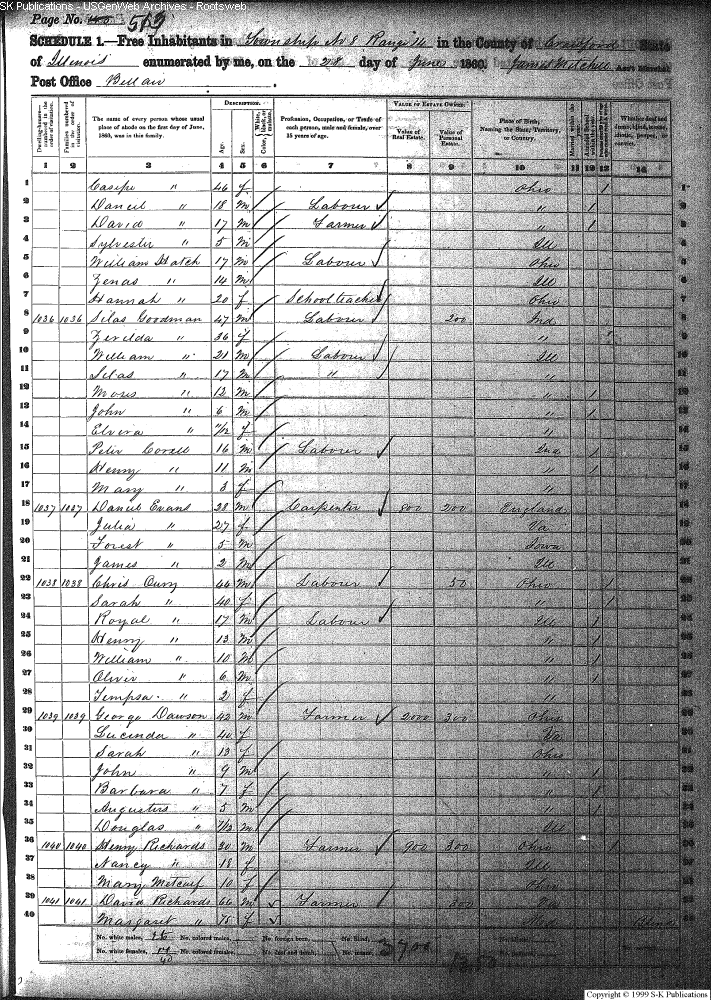 SK Publications - USGenWeb Archives - Rootsweb
Page No. 519
SCHEDULE 1.—Free Inhabitants in Township No 8 Range 11 in the County of Crawford State
of Illinois enumerated by me, on the 28 day of June 1860. James Mitchell Ass't Marshal
Post Office Bellair
Dwelling-houses—numbered in the order of visitation. Families numbered in the order of visitation. The name of every person whose usual place of abode on the first day of June, 1860, was in this family. DESCRIPTION. Age. Sex. Color, White, black, or mulatto. Profession, Occupation, or Trade of each person, male and female, over 15 years of age. VALUE OF ESTATE OWNED. Value of Real Estate. Value of Personal Estate. Place of Birth, Naming the State, Territory, or Country.
1 2 3 4 5 6 7 8 9 10 11 12 13 14
1 " 46 f Ohio 1
2 Daniel " 18 m Labour " 1 2
3 David " 17 m Farmer " 1 3
4 Sylvester " 5 m Ill 4
5 William Hatch 17 m Labour Ohio 5
6 Zenas " 14 m Ill 6
7 Hannah " 20 f School teacher Ohio 7
8 1036 1036 Silas Goodman 47 m Labour 200 Ind 8
9 Zerelda " 36 f " 9
10 William " 21 m Labour Ill 10
11 Silas " 17 m " " 11
12 " 12 m " 1
13 John " 6 m " 1
14 Elvira " f "
15 Peter 16 m Labour Ind 1
16 Henny " 11 m " 1
17 Mary " 3 f "
18 1037 1037 Daniel Evans 28 m Carpenter 800 200 England
19 Julia " 27 f Va
20 Forest " 5 m Iowa
21 James " 2 m Ill
22 1038 1038 Chris Cury 44 m Labour 50 Ohio 1
23 Sarah " 40 f " 1
24 Royal " 17 m Labour Ill 1
25 Henny " 13 m " 1
26 William " 10 m " 1
27 Oliver " 6 m " 1
28 Tempsa " 2 f "
29 1039 1039 George Dawson 42 m Farmer 2000 300 Ohio
30 Lucinda " 40 f Va
31 Sarah " 13 f Ohio
32 John " 9 m " 1
33 Barbara " 7 f " 1
34 Augusters " 5 m " 1
35 Douglas " 7/12 m Ill
36 1040 1040 Henny Richards 30 m Farmer 900 300 Ohio
37 Nancy " 18 f Ill
38 Mary Metcalf 10 f Ohio
39 1041 1041 David Richards 66 m Farmer 300 Va
40 Margaret " 75 f Blind
No. white males, No. colored males, No. foreign born, No. blind, 3700
No. white females, No. colored females, No. deaf and dumb,
40
Copyright © 1999 S-K Publications